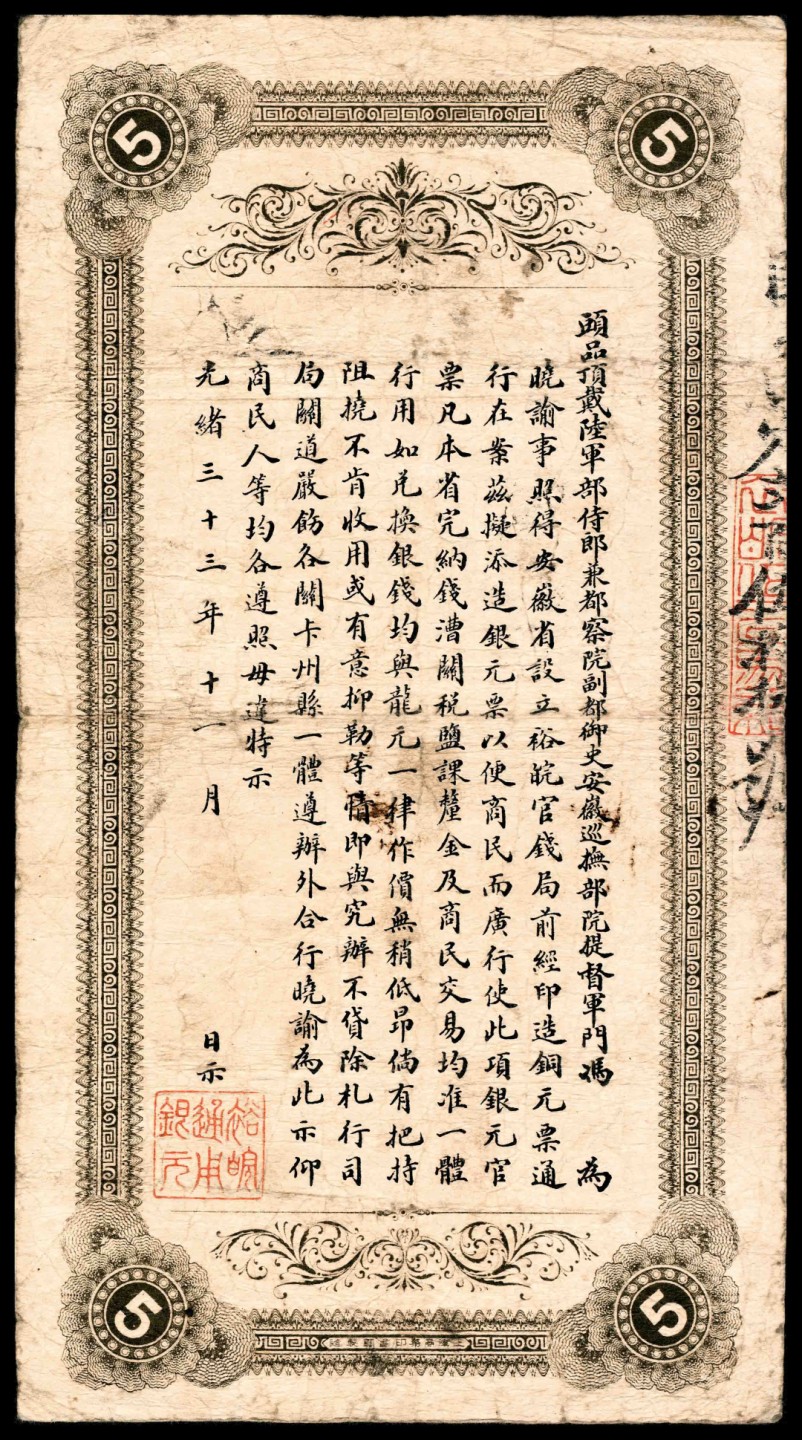 5
5
頭品頂戴陸軍部侍郎兼都察院副都御史安徽巡撫部院提督軍門馮 為
曉諭事照得安徽省設立裕皖官錢局前經印造銅元票通
行在案茲擬添造銀元票以便商民而廣行使此項銀元官
票凡本省完納錢漕關稅鹽課釐金及商民交易均准一體
行用如兑換銀錢均與龍元一律作價無稍低昂倘有把持
阻撓不肯收用或有意抑勒等情即與究辦不貸除札行司
局關道嚴飭各關卡州縣一體遵辦外合行曉諭為此示仰
商民人等均各遵照毋違特示
光緒三十三年十一月 日示
裕皖
通用
銀元
5
5